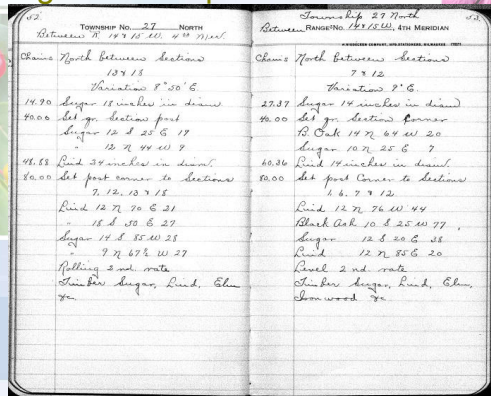 52.
TOWNSHIP NO. 27 NORTH
Between R 14 & 15 W. 4th Mer.
Chains North Between Sections
13 & 18
Variation 8° 50' E
14.90 Sugar 18 inches in diam
40.00 Set qr. Section post
Sugar 12 S 25 E 19
" 12 N 44 W 9
48.88 Lind 24 inches in diam.
80.00 Set post corner to Sections
7, 12, 13 & 18
Lind 12 N 70 E 21
" 18 S 50 E 27
Sugar 14 S 85 W 28
" 9 N 67½ W 27
Rolling 2nd. rate
Timber Sugar, Lind, Elm
&c.
Township 27 North 53.
Between RANGE NO. 14 & 15 W., 4TH MERIDIAN
Chains North Between Sections
7 & 12
Variation 9° E.
27.37 Sugar 14 inches in diam
40.00 Set qr. Section Corner
B. Oak 14 N 64 W 20
Sugar 10 N 25 E 7
60.36 Lind 14 inches in diam.
80.00 Set post Corner to Sections
1, 6, 7 & 12
Lind 12 N 76 W 44
Black Ash 10 S 25 W 77
Sugar 12 S 20 E 38
Lind 12 N 85 E 20
Level 2nd rate
Timber Sugar, Lind, Elm,
Ironwood &c